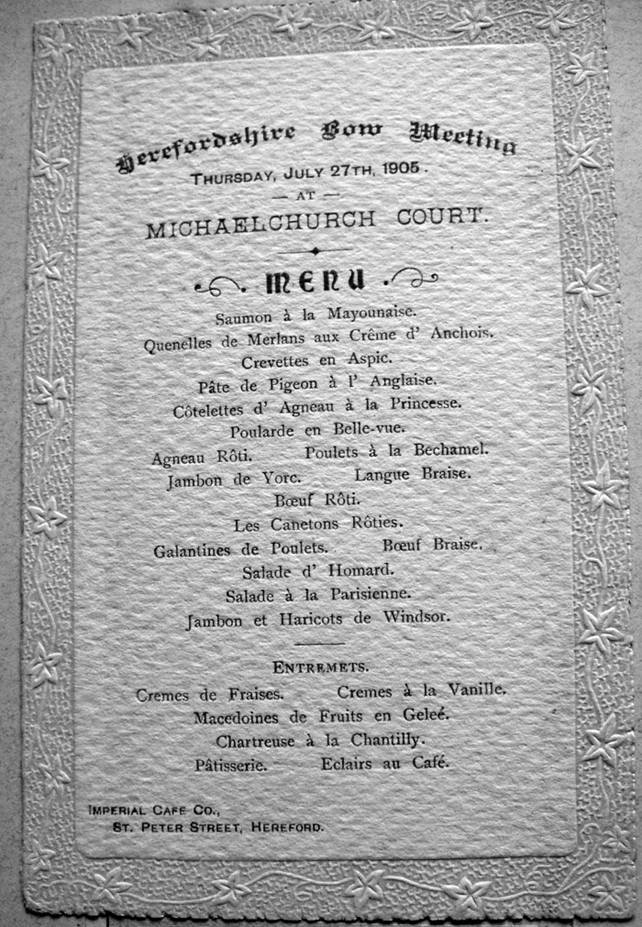 Herefordshire Bow Meeting
THURSDAY, JULY 27TH, 1905.
— AT —
MICHAELCHURCH COURT.
MENU
Saumon à la Mayounaise.
Quenelles de Merlans aux Crême d' Anchois.
Crevettes en Aspic.
Pâte de Pigeon à l' Anglaise.
Côtelettes d' Agneau à la Princesse.
Poularde en Belle-vue.
Agneau Rôti. Poulets à la Bechamel.
Jambon de Yorc. Langue Braise.
Bœuf Rôti.
Les Canetons Rôties.
Galantines de Poulets. Bœuf Braise.
Salade d' Homard.
Salade à la Parisienne.
Jambon et Haricots de Windsor.
ENTREMETS.
Cremes de Fraises. Cremes à la Vanille.
Macedoines de Fruits en Geleé.
Chartreuse à la Chantilly.
Pâtisserie. Eclairs au Café.
IMPERIAL CAFE CO.,
ST. PETER STREET, HEREFORD.